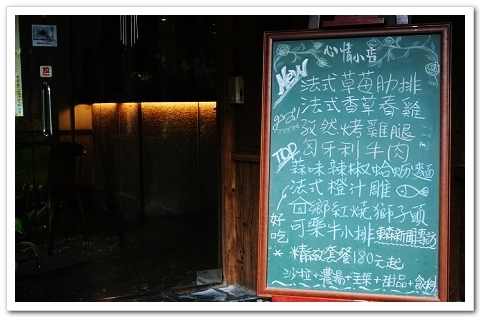 心情小店
New
法式草莓肋排
good
法式香草香雞
孜然烤雞腿
TOP
匈牙利牛肉
蒜味辣椒蛤蚧麵
法式橙汁鵰
客鄉紅燒獅子頭
好吃
可樂牛小排 東森新聞專訪
*精緻套餐180元起
沙拉+濃湯+主菜+甜品+飲料